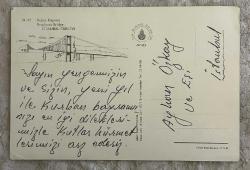 Boğaz Köprüsü
Bosphorus Bridge
İSTANBUL-TÜRKİYE
Sayın yengemizin
ve sizin, yeni yıl
ile Kurban bayramını
sizi en iyi dileklerimizle
Kutlar hürmet
lerimizi arz ederiz.
Ayhan Özkay
ve Eşi
İstanbul